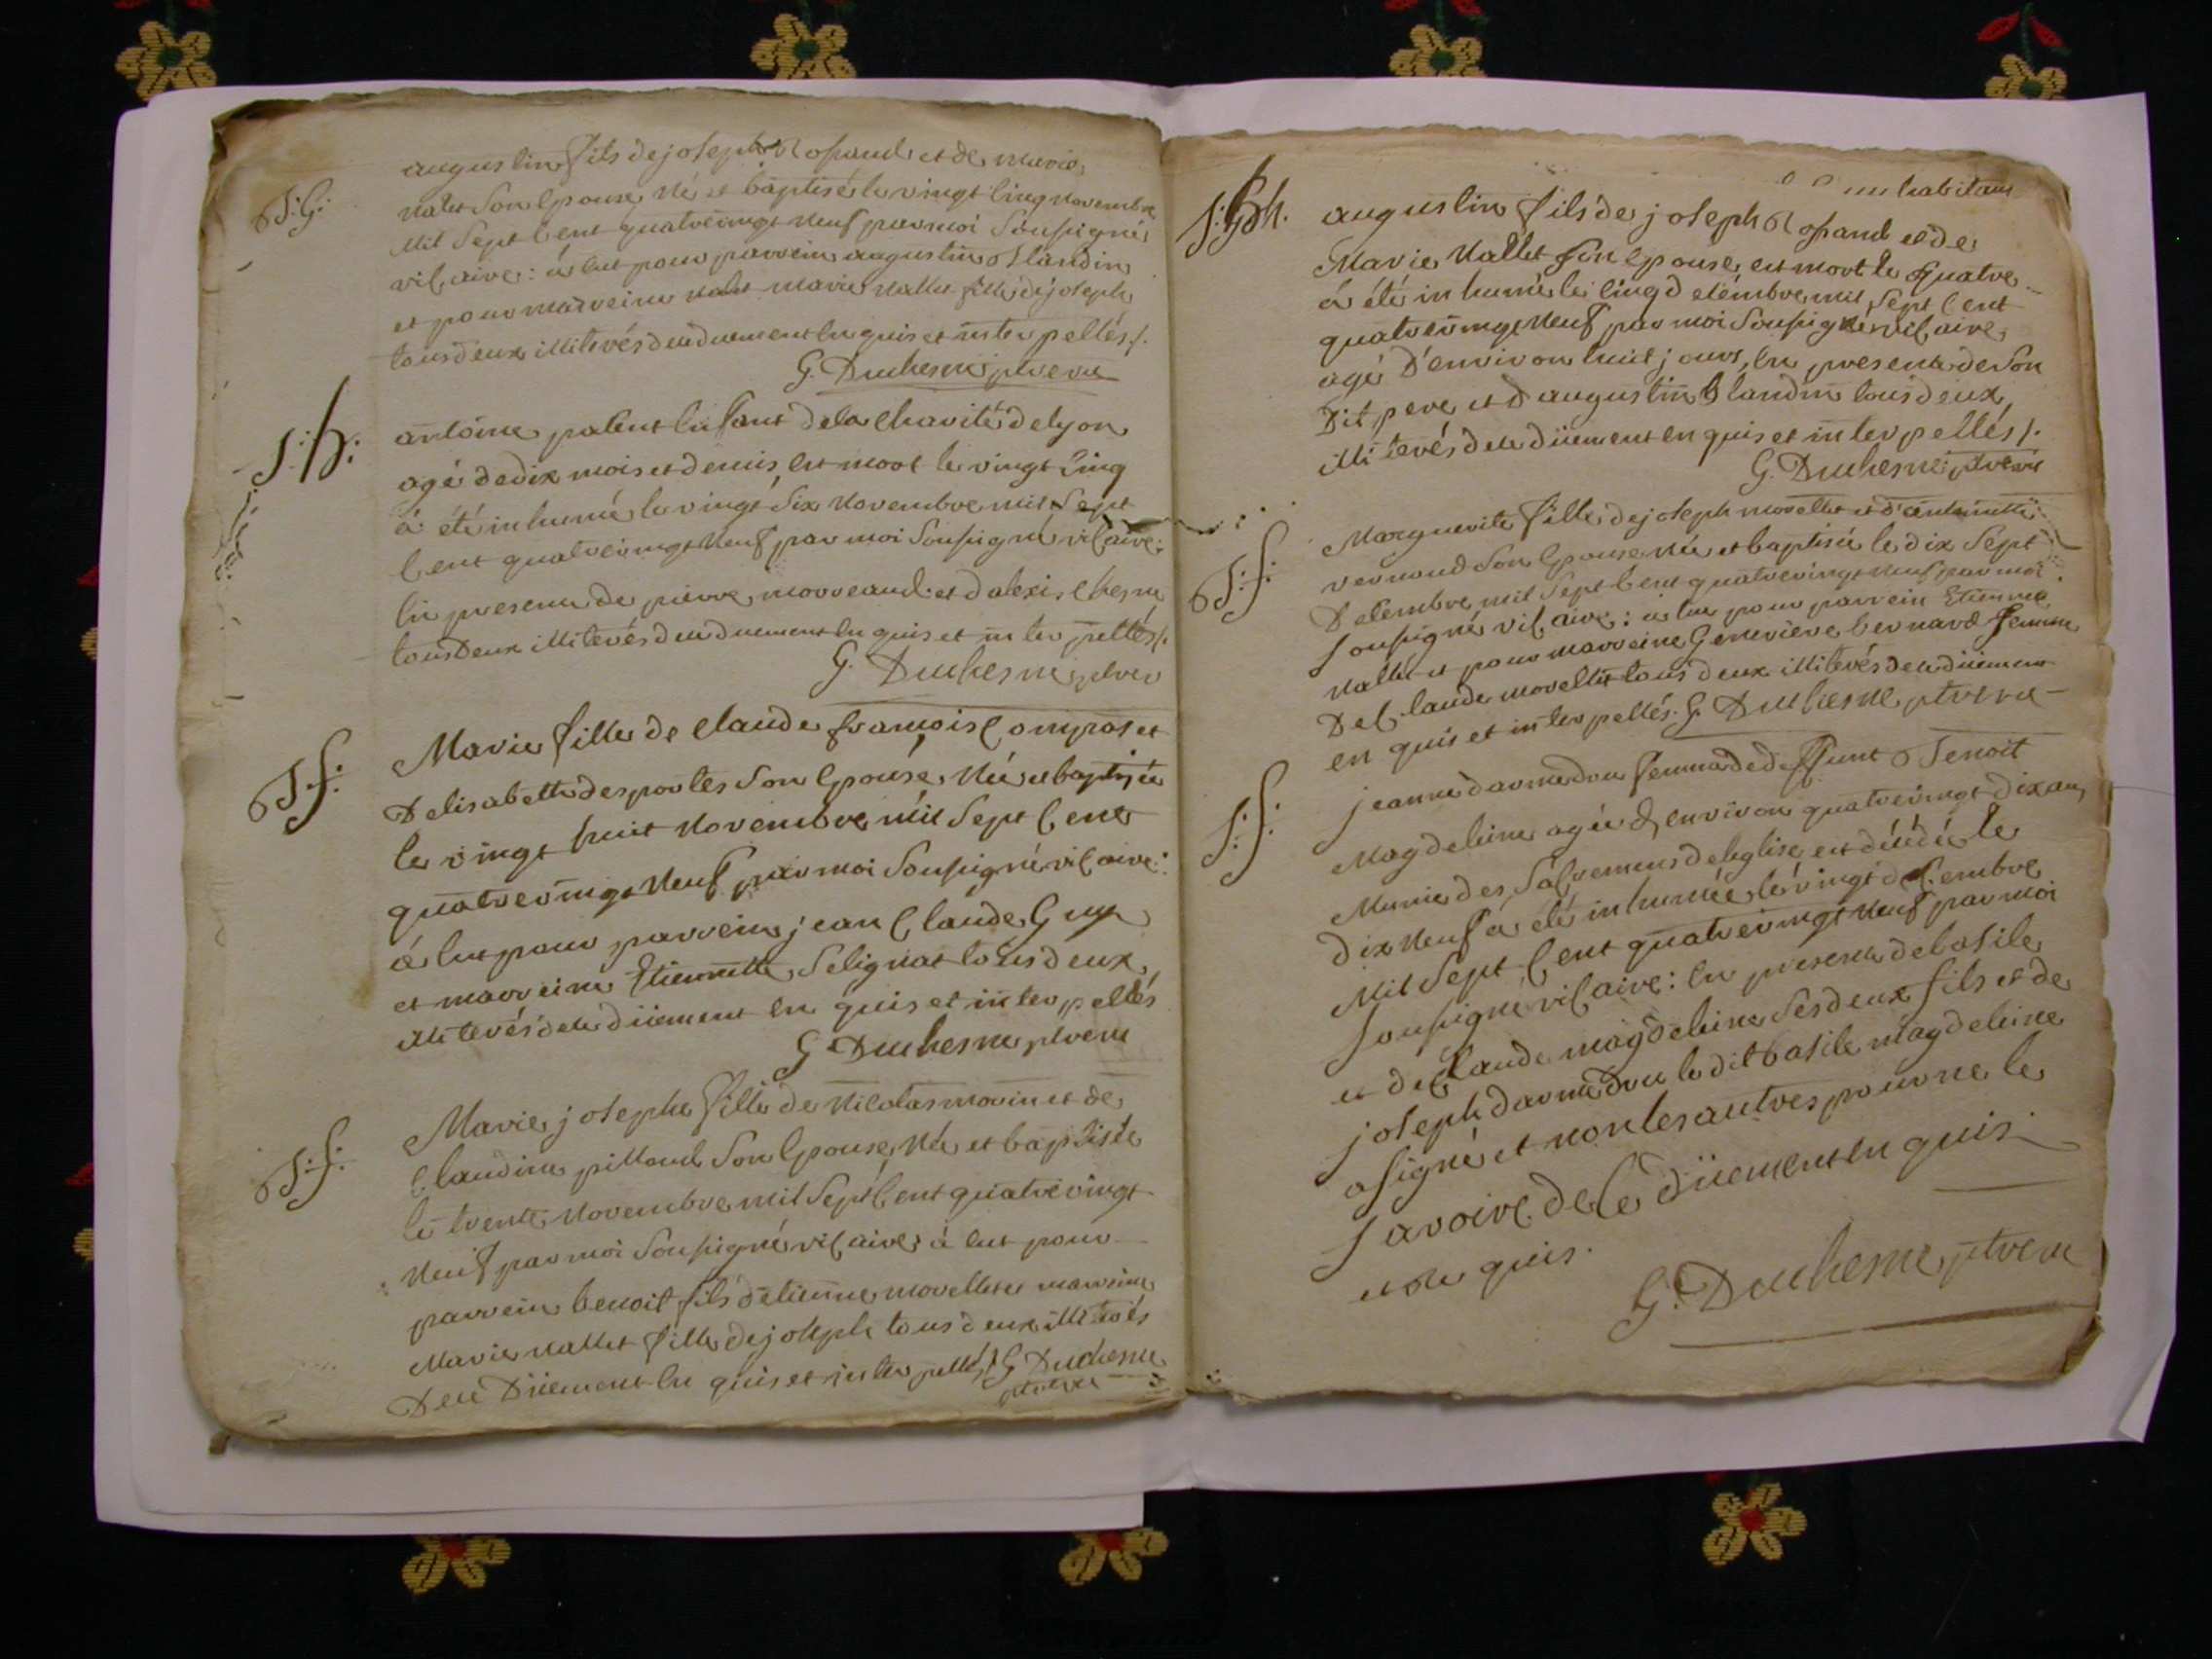 B: G: augustin fils de joseph Rosand et de marie
Nalet Son Epouse Né et baptisé le vingt Cinq Novembre
Mil Sept Cent quatrevingt Neuf par moi Soussigné
vicaire: á Eut pour parrein augustin Blandin
et pour marreine marie Nallet fille de joseph
tous deux illiterés de ce duement En quis et inter pellés /.
G. Duchesne ptre vre
S: h: antoine palent En fant de la Charité de Lyon
agé de dix mois et demis Est mort le vingt Cinq
á été inhumé le vingt Six Novembre mil Sept
Cent quatrevingt Neuf par moi Soussigné vicaire:
En presence de pierre morreaud et d alexis Chesne
tous Deux illiterés de ce duement En quis et inter pellés /.
G. Duchesne ptre v
B: f: Marie fille de Claude françois Compas et
D elisabette desportes Son Epouse Née et baptisée
le vingt huit Novembre mil Sept Cent
quatrevingt Neuf par moi Soussigné vicaire:
á Eut pour parrein jean Claude Guy
et marreine Etiennette Selignat tous deux
illiterés de ce düement En quis et inter pellés
G Duchesne ptre vre
B: f: Marie josephe fille de Nicolas morin et de
Claudine pilland Son Epouse Née et baptisée
le trente Novembre mil Sept Cent quatrevingt
Neuf par moi Soussigné vicaire á Eut pour
parrein benoit fils d'etienne morellet et marreine
Marie Nallet fille de joseph tous deux illiterés
De ce Düement En quis et inter pellés /. G Duchesne
ptre vre
habitans
S: G h. augustin fils de joseph Rosand et de
Marie Nallet Son Epouse est mort le quatre
á été in humé le Cinq decembre mil Sept Cent
quatrevingt Neuf par moi Soussigné vicaire
agé D'environ huit jours, En presence de Son
Dit pere et d augustin Blandin tous deux
illiterés de ce düement En quis et inter pellés /.
G. Duchesne ptre vre
B: f: Marguerite fille de joseph morellet et d'antoinette
vernoud Son Epouse Née et baptisée le dix Sept
Decembre mil Sept Cent quatrevingt Neuf par moi
Soussigné vicaire: á Eu pour parrein Etienne
Nallet et pour marreine Genevieve bernard femme
De Claude morellet tous deux illiterés de ce düement
en quis et inter pellés. G. Duchesne ptre vre
S: f: jeanne darmedru femme de deffunt Benoit
Magdeleine agée d'environ quatrevingt dix ans
Munie des Sacremens de leglise est décédée le
dix Neuf á été in humée le vingt decembre
Mil Sept Cent quatrevingt Neuf par moi
Soussigné vicaire: En presence de basile
et de Claude magdeleine Ses deux fils et de
joseph darmedru le dit basile magdeleine
a signé et non les autres pour ne le
Savoire de Ce düement En quis
et re quis.
G. Duchesne ptre vre